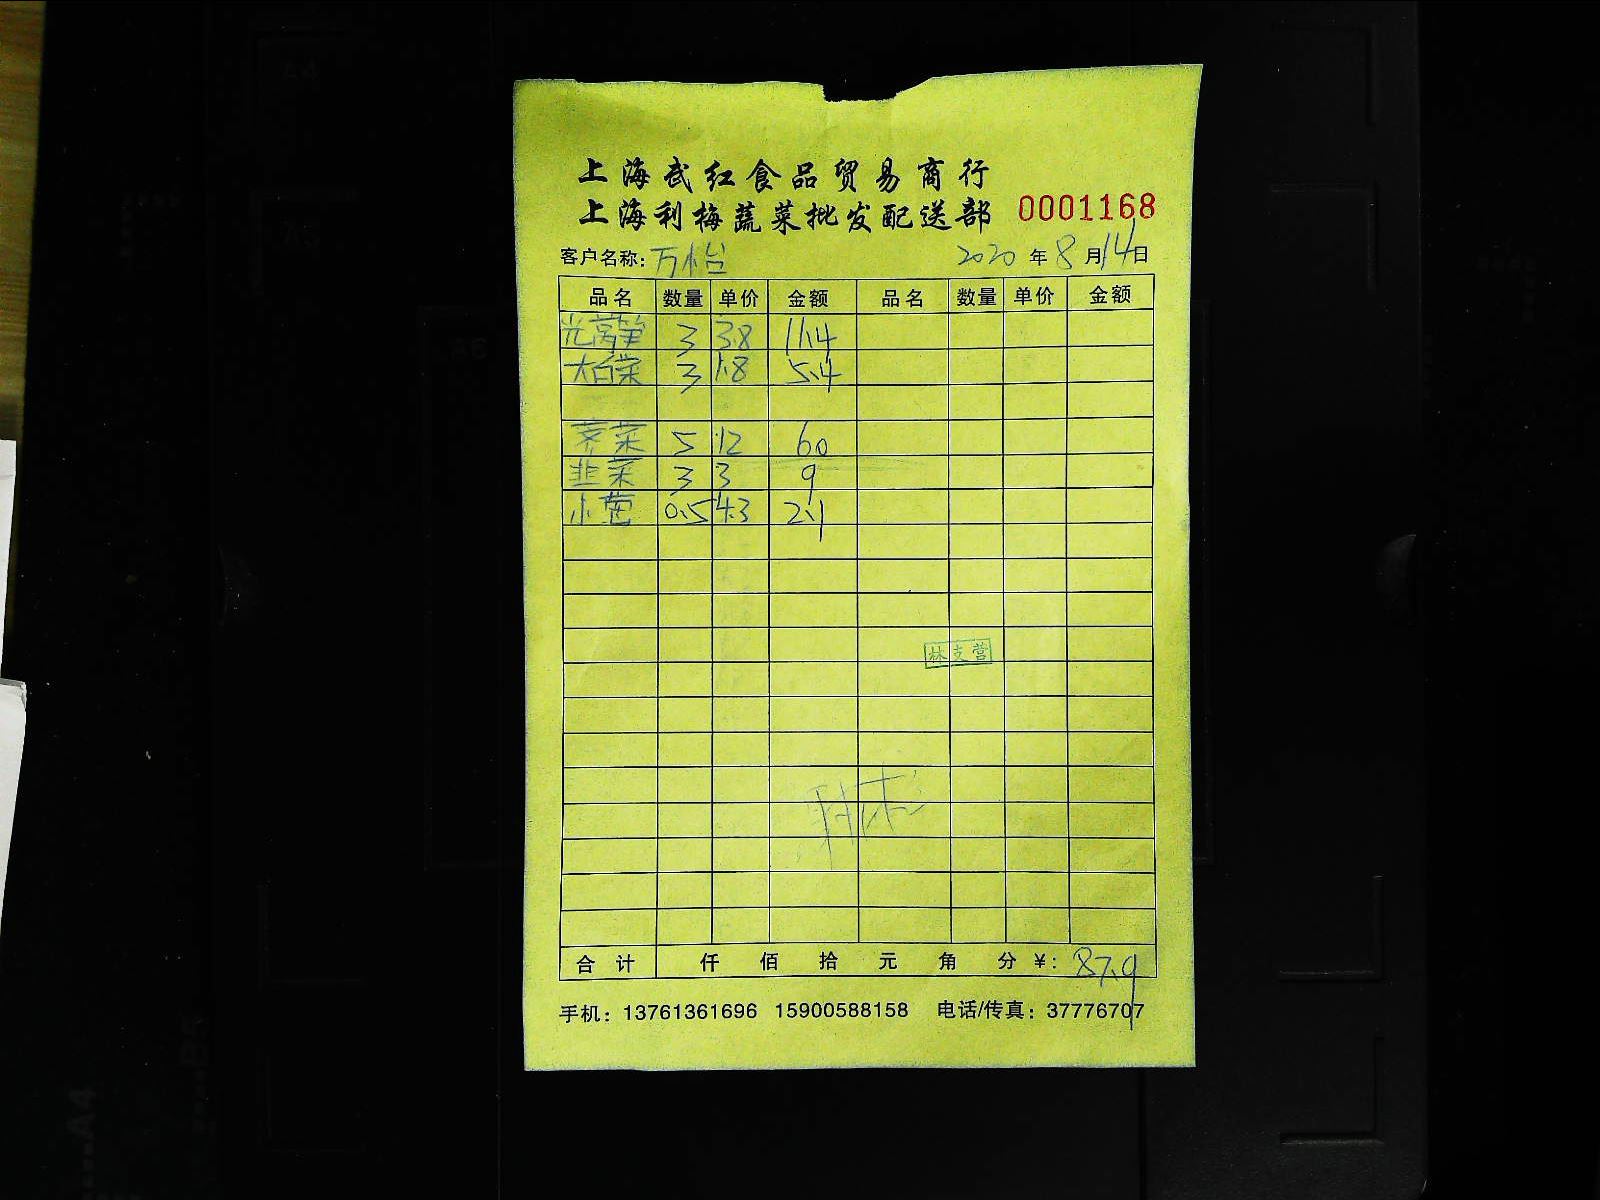 上海武红食品贸易商行
上海利梅蔬菜批发配送部 0001168
客户名称: 万怡 2020 年 8 月 14 日
品名 数量 单价 金额 品名 数量 单价 金额
光莴笋 3 3.8 11.4
大白菜 3 1.8 5.4
荠菜 5 12 60
韭菜 3 3 9
小葱 0.5 4.3 2.1
林支营
合计 仟 佰 拾 元 角 分 ¥: 87.9
手机: 13761361696 15900588158 电话/传真: 37776707